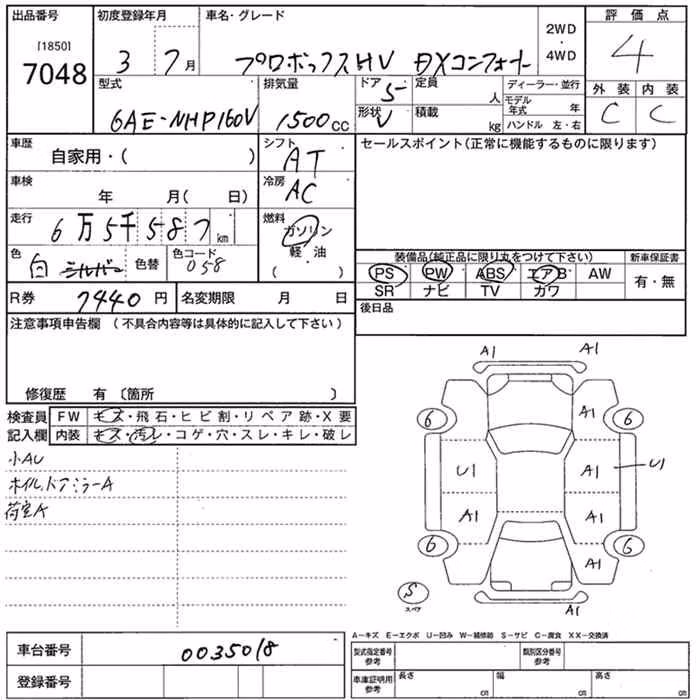 出品番号 初度登録年月 車名・グレード 2WD ・ 4WD 評価点
[1850]
7048 3 7月 プロボックスHV DXコンフォート 4
型式 排気量 ドア 5 定員 人 ディーラー・並行 外装 内装
6AE-NHP160V 1500cc 形状 V 積載 kg モデル年式 年 C C
ハンドル 左・右
車歴 自家用・( ) シフト AT セールスポイント(正常に機能するものに限ります)
車検 年 月( 日) 冷房 AC
走行 6万5千587km 燃料 ガソリン
軽・油
( )
色 白 シルバー 色替 色コード 058
装備品(純正品に限り丸をつけて下さい) 新車保証書
PS PW ABS エアB AW 有・無
SR ナビ TV カワ
R券 7440円 名変期限 月 日 後日品
注意事項申告欄 (不具合内容等は具体的に記入して下さい)
修復歴 有 〔箇所 〕
検査員記入欄 FW キズ・飛石・ヒビ割・リペア跡・X要
内装 キズ・汚レ・コゲ・穴・スレ・キレ・破レ
小AU
ホイル、ドアミラーA
荷室A
A1 A1
6 A1 6
U1 A1 U1
A1 A1
6 A1 6
S
スペア
A1
A-キズ E-エクボ U-凹み W-補修跡 S-サビ C-腐食 XX-交換済
車台番号 0035018 型式指定番号参考 類別区分番号参考
登録番号 車庫証明用参考 長さ cm 幅 cm 高さ cm